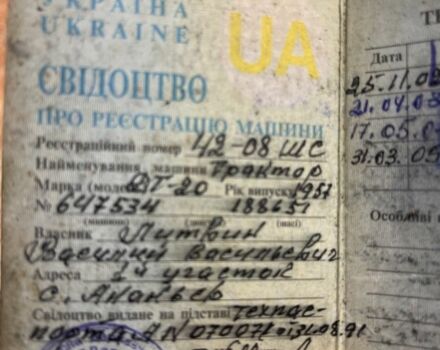 УКРАЇНА
UKRAINE
UA
СВІДОЦТВО
ПРО РЕЄСТРАЦІЮ МАШИНИ
Реєстраційний номер 42-08 ШС
Найменування машини Трактор
Марка (модель) ДТ-20 Рік випуску 1957
№ 647534 188651
(машини) (шасі)
Власник Литвин
Василий Васильевич
Адреса 2й участок
с. Ананьев
Свідоцтво видане на підставі техпас-
порта АN 070071 31.08.91
Дата
25.11.0
21.04.0
17.05.0
31.03.05
Особливі